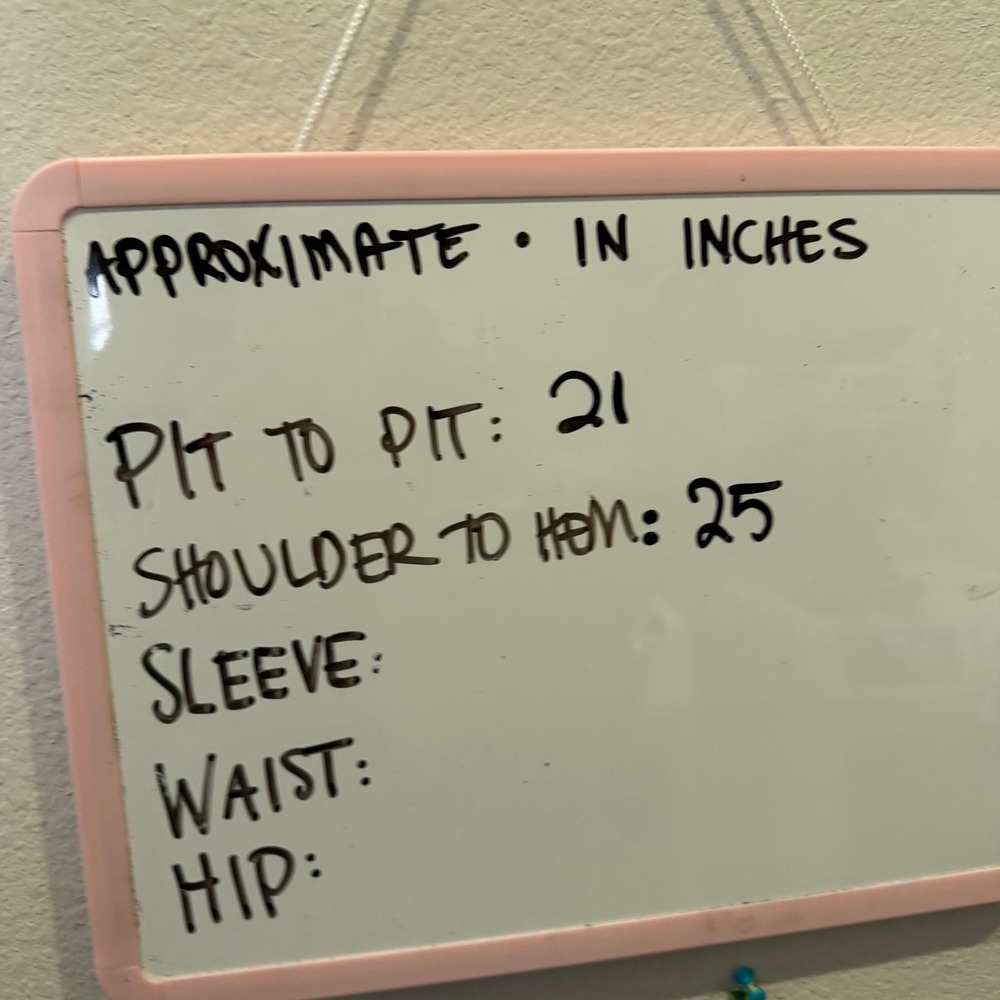 APPROXIMATE · IN INCHES
PIT TO PIT: 21
SHOULDER TO HEM: 25
SLEEVE:
WAIST:
HIP: